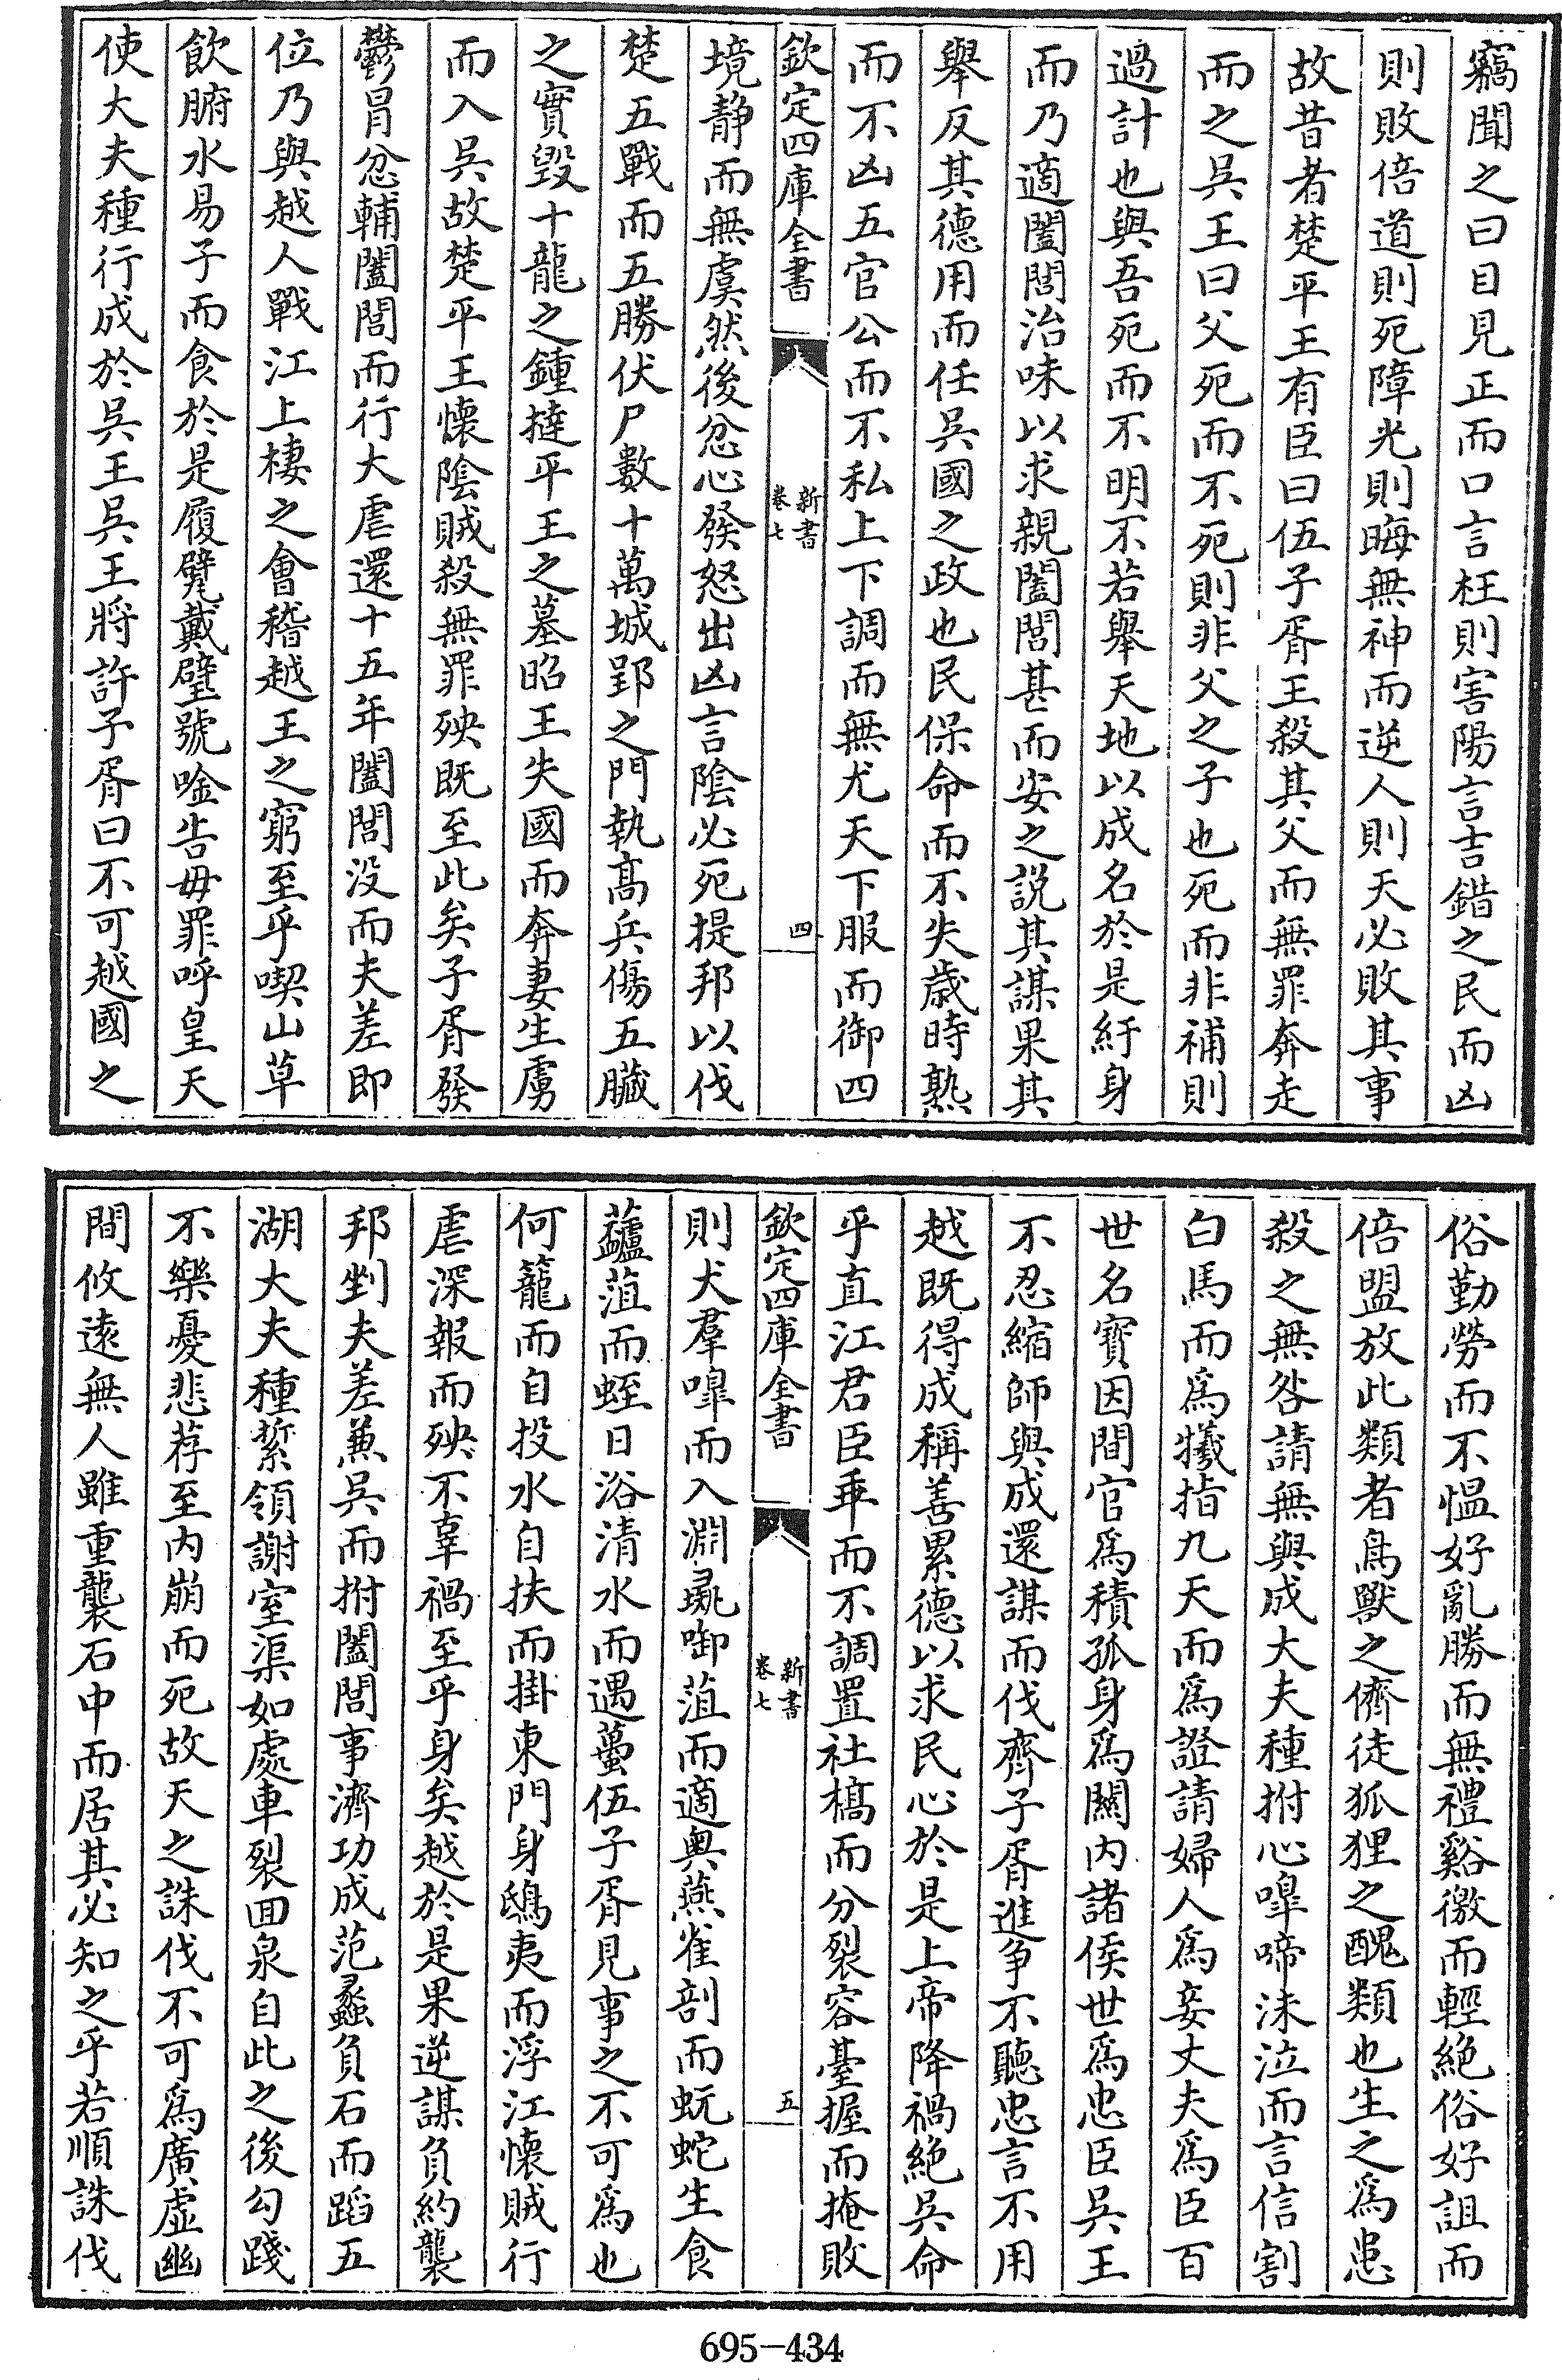 竊聞之曰目見正而口言枉則害陽言吉錯之民而凶
則敗倍道則死障光則晦無神而逆人則天必敗其事
故昔者楚平王有臣曰伍子胥王殺其父而無罪奔走
而之吳王曰父死而不死則非父之子也死而非補則
過計也與吾死而不明不若舉天地以成名於是紆身
而乃適闔閭治味以求親闔閭甚而安之説其謀果其
舉反其德用而任吳國之政也民保命而不失歳時熟
而不凶五官公而不私上下調而無尤天下服而御四
欽定四庫全書
新書
卷七
四
境静而無虞然後忿心發怒出凶言陰必死提邦以伐
楚五戰而五勝伏尸數十萬城郢之門執高兵傷五臟
之實毀十龍之鍾撻平王之墓昭王失國而奔妻生虜
而入吳故楚平王懷陰賊殺無罪殃既至此矣子胥發
鬱冒忿輔闔閭而行大虐還十五年闔閭没而夫差即
位乃與越人戰江上棲之會稽越王之窮至乎喫山草
飲腑水易子而食於是履甓戴璧號唫告毋罪呼皇天
使大夫種行成於吳王吳王將許子胥曰不可越國之
俗勤勞而不愠好亂勝而無禮谿徼而輕絶俗好詛而
倍盟放此類者鳥獸之儕徒狐狸之醜類也生之爲患
殺之無咎請無與成大夫種拊心嘷啼沬泣而言信割
白馬而爲犧指九天而爲證請婦人爲妾丈夫爲臣百
世名寳因間官爲積孤身爲關内諸侯世爲忠臣吳王
不忍縮師與成還謀而伐齊子胥進争不聽忠言不用
越既得成稱善累德以求民心於是上帝降禍絶吳命
乎直江君臣乖而不調置社槁而分裂容臺握而掩敗
欽定四庫全書
新書
卷七
五
則犬羣嘷而入淵彘啣菹而適奥燕雀剖而蚖蛇生食
蘆菹而蛭日浴清水而遇蠆伍子胥見事之不可爲也
何籠而自投水自抉而掛東門身鴟夷而浮江懷賊行
虐深報而殃不辜禍至乎身矣越於是果逆謀負約襲
邦剉夫差兼吳而拊闔閭事濟功成范蠡負石而蹈五
湖大夫種縶領謝室渠如處車裂囬泉自此之後勾踐
不樂憂悲荐至内崩而死故天之誅伐不可爲廣虛幽
間攸逺無人雖重襲石中而居其必知之乎若順誅伐
695-434